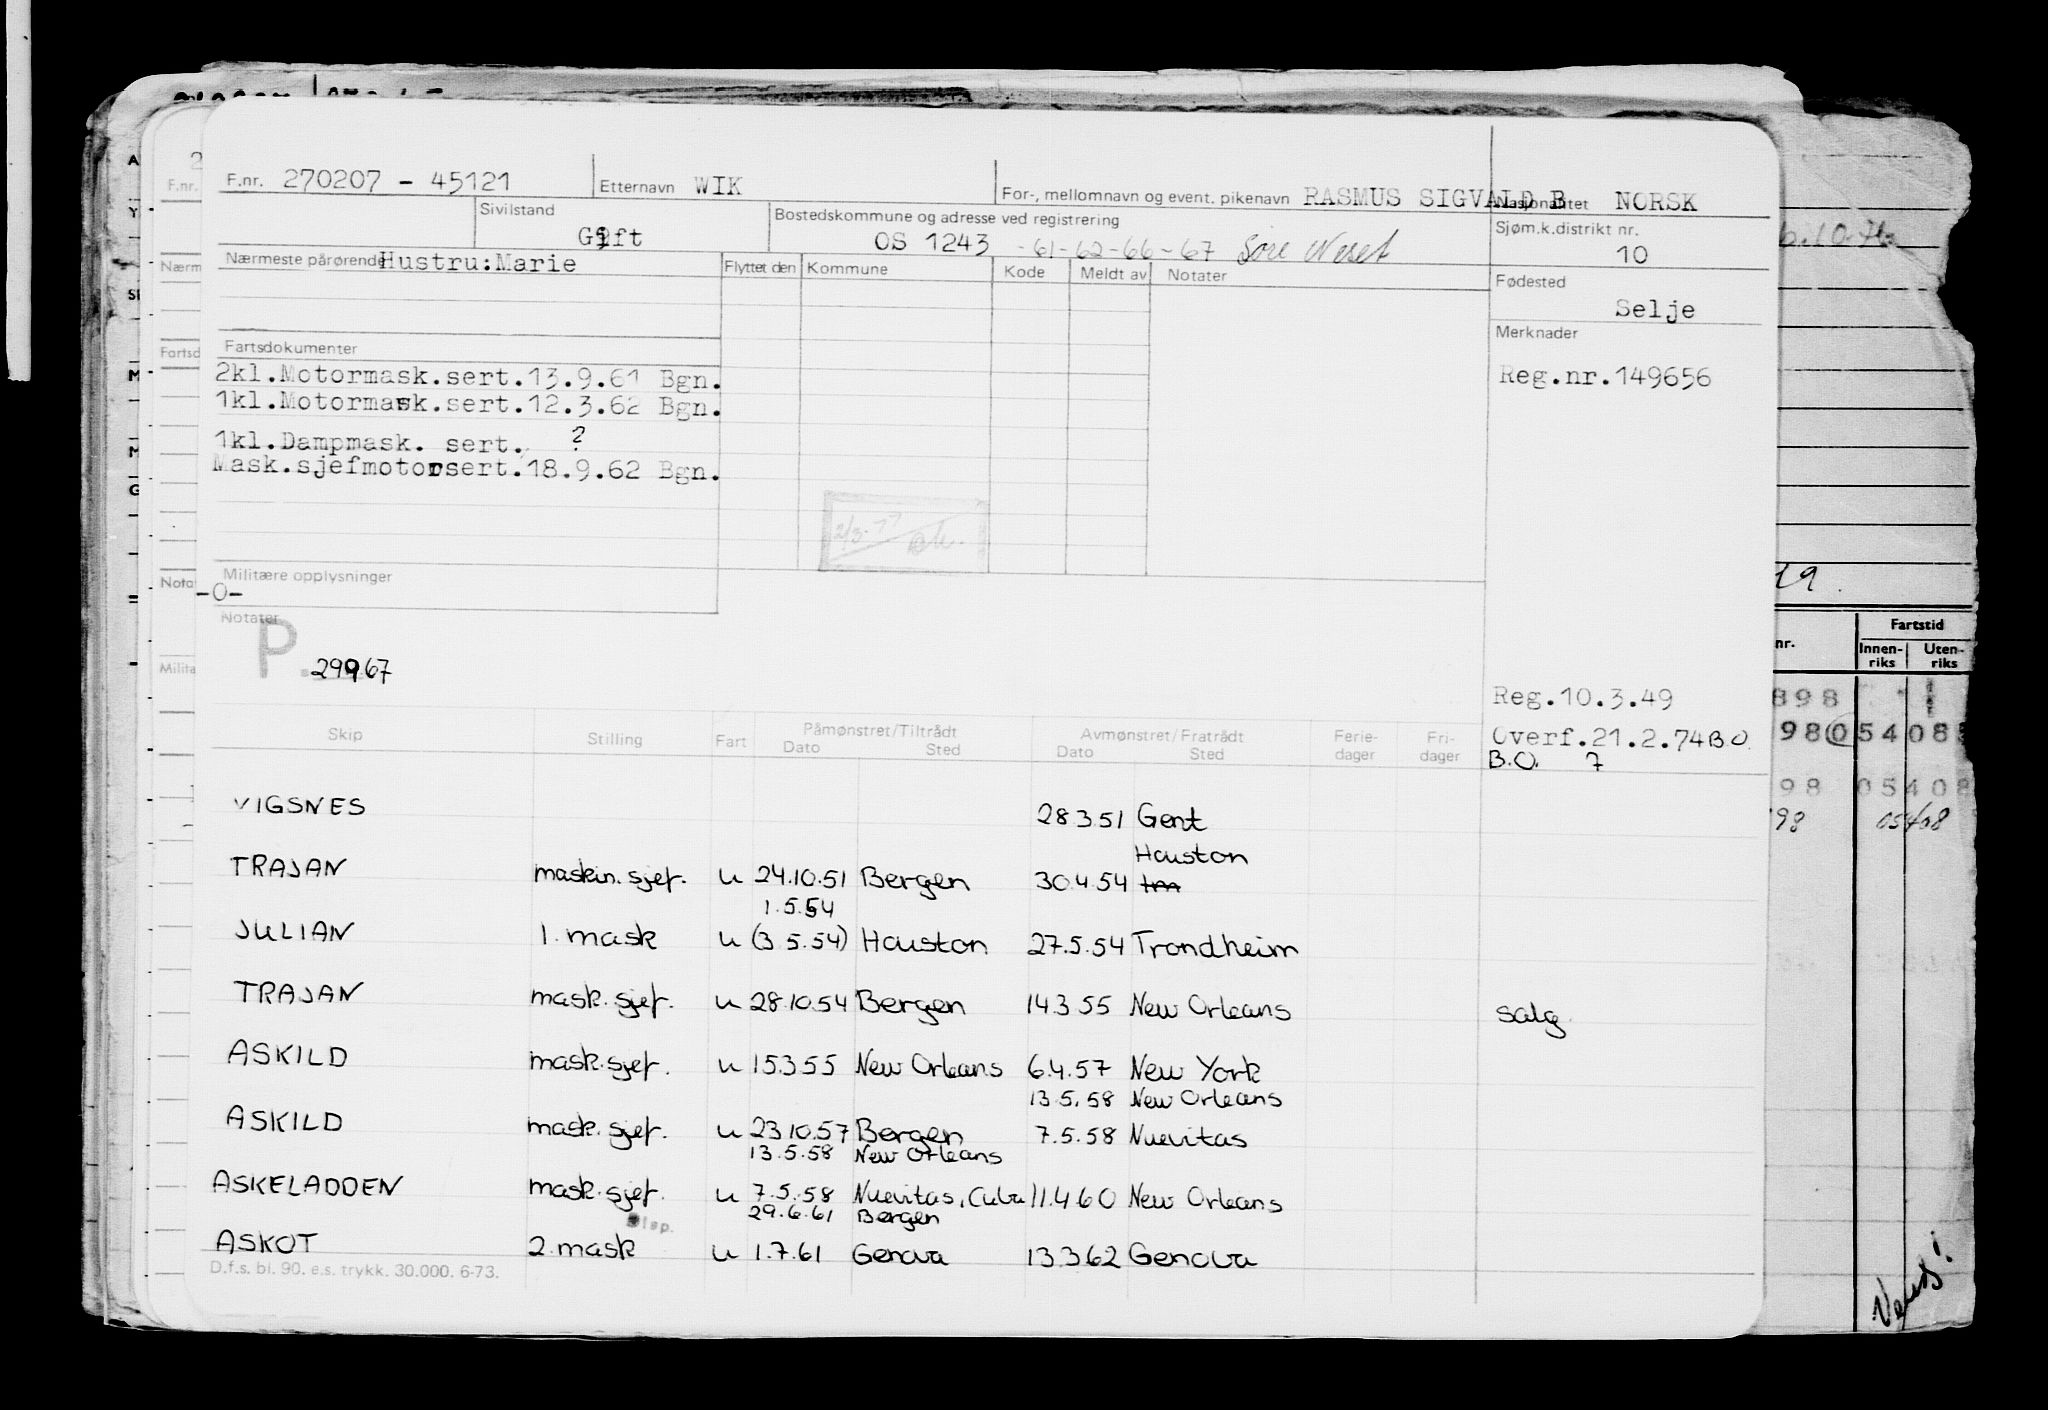 F.nr. 270207 - 45121 Etternavn WIK For-, mellomnavn og event. pikenavn RASMUS SIGVALD B Nasjonalitet NORSK
Sivilstand Gift Bostedskommune og adresse ved registrering OS 1243 -61-62-66-67 Søre Neset Sjøm.k.distrikt nr. 10
Nærmeste pårørende Hustru:Marie Flyttet den Kommune Kode Meldt av Notater
Fødested
Selje
Merknader
Fartsdokumenter
2kl.Motormask.sert.13.9.61 Bgn. Reg.nr.149656
1kl.Motormask.sert.12.3.62 Bgn.
1kl.Dampmask. sert. ?
Mask.sjefmotorsert.18.9.62 Bgn.
2/3-77
Militære opplysninger
-0-
Notater
P. 29967
Reg.10.3.49
Overf.21.2.74 B.O.
B.O. 7
Skip Stilling Fart Påmønstret/Tiltrådt Dato Sted Avmønstret/Fratrådt Dato Sted Ferie-dager Fri-dager
VIGSNES 28351 Gent
Houston
TRAJAN maskin.sjef. u 24.10.51 Bergen 30.4.54 tm
1.5.54
JULIAN 1.mask u (3.5.54) Houston 27.5.54 Trondheim
TRAJAN mask.sjef. u 28.10.54 Bergen 14.3 55 New Orleans salg.
ASKILD mask.sjef. u 15355 New Orleans 6.4.57 New York
13.5.58 New Orleans
ASKILD mask.sjef. u 23.10.57 Bergen 7.5.58 Nuevitas
13.5.58 New Orleans
ASKELADDEN mask.sjef. u 7.5.58 Nuevitas, Cuba 11.4.60 New Orleans
29.6.61 Bergen
Disp.
ASKOT 2.mask u 1.7.61 Genova 13.3.62 Genova
D.f.s. bl. 90. e.s. trykk. 30.000. 6-73.
F.nr.
Nærm
Fartsd
Nota
Milita
19.
nr. Fartstid
Innen-riks Uten-riks
898
980 54 08
98 05408
98 05408
Vends!